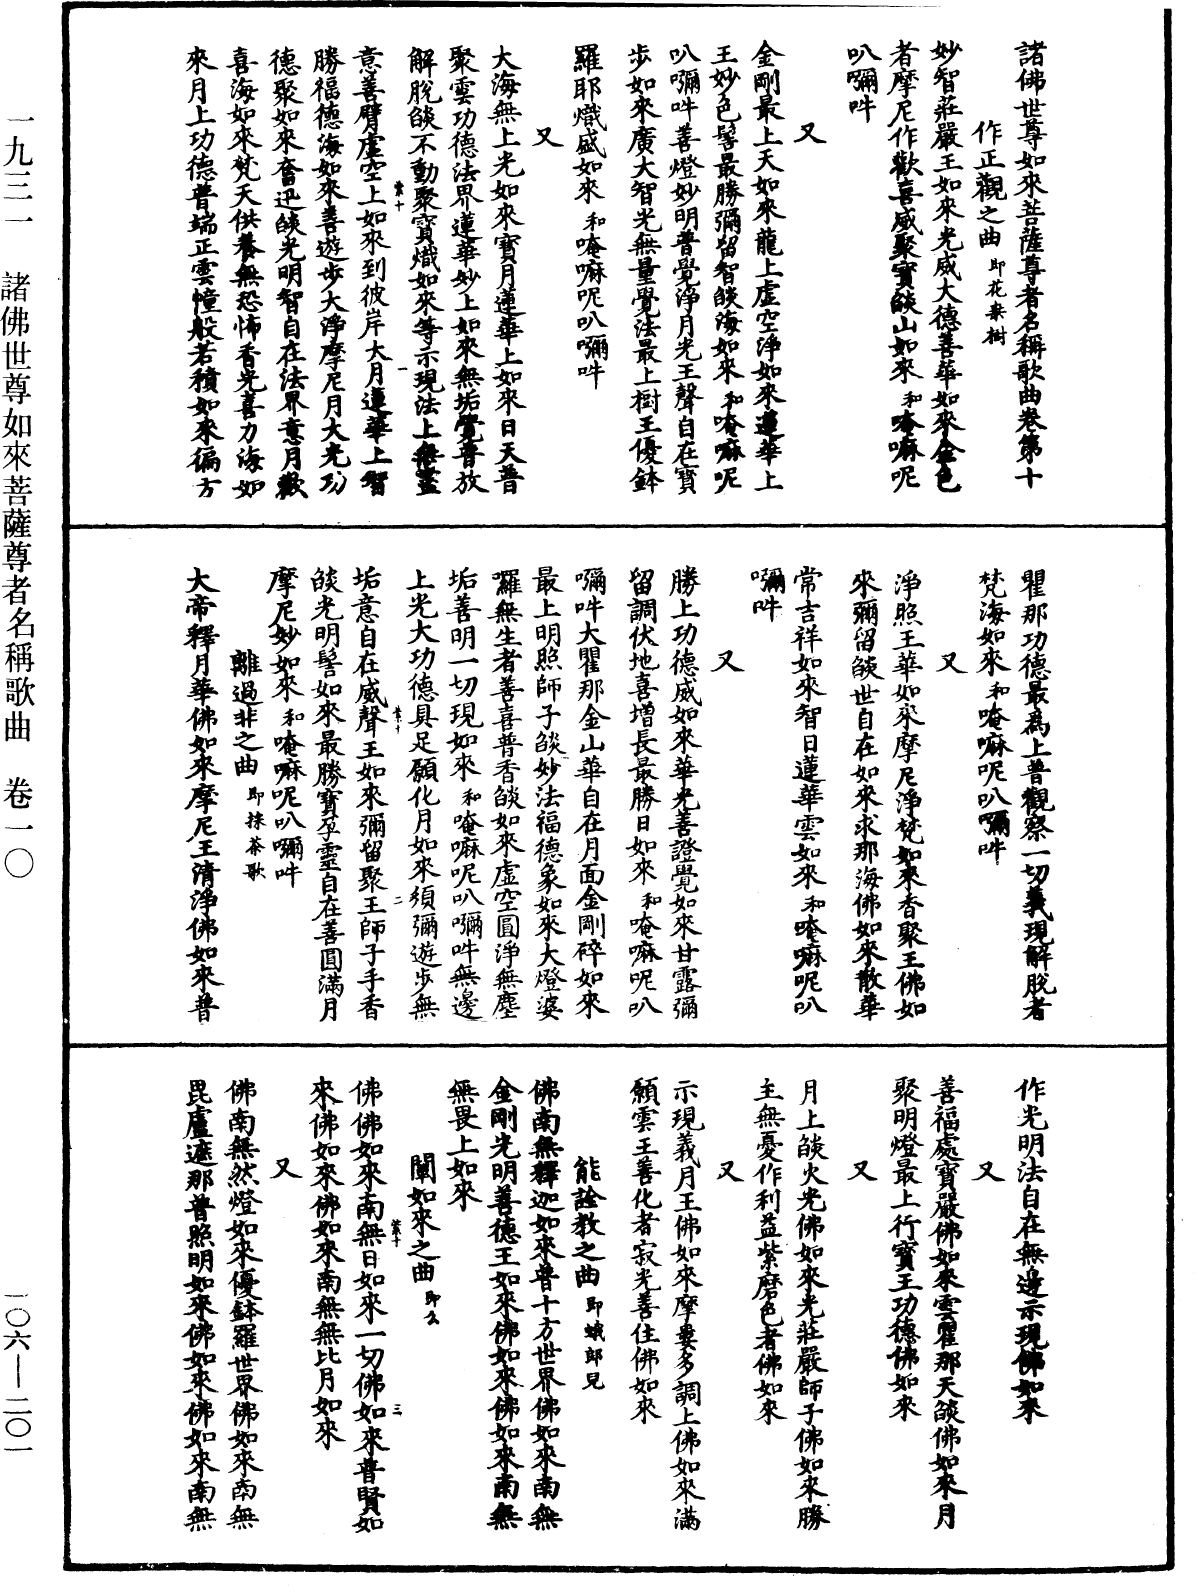 諸佛世尊如來菩薩尊者名稱歌曲卷第十
作正觀之曲 即花桒樹
妙智莊嚴王如來光威大德善華如來金色
者摩尼作歡喜威聚寶燄山如來 和唵嘛呢
叭嚩吽
又
金剛最上天如來龍上虛空淨如來蓮華上
王妙色髻最勝彌留智燄海如來 和唵嘛呢
叭嚩吽善燈妙明普覺淨月光王聲自在寶
步如來廣大智光無量覺法最上樹王優鉢
羅耶熾盛如來 和唵嘛呢叭嚩吽
又
大海無上光如來寶月蓮華上如來日天普
聚雲功德法界蓮華妙上如來無垢覺普放
解脫燄不動聚寶熾如來等示現法上無盡
意善臂虛空上如來到彼岸大月蓮華上智
勝福德海如來善遊步大淨摩尼月大光功
德聚如來奮迅燄光明智自在法界意月歡
喜海如來梵天供養無恐怖香光喜力海如
來月上功德普端正雲幢般若積如來徧方
瞿那功德最為上普觀察一切義現解脫者
梵海如來 和唵嘛呢叭嚩吽
又
淨照王華如來摩尼淨梵如來香聚王佛如
來彌留燄世自在如來求那海佛如來散華
常吉祥如來智日蓮華雲如來 和唵嘛呢叭
嚩吽
又
勝上功德威如來華光善證覺如來甘露彌
留調伏地喜增長最勝日如來 和唵嘛呢叭
嚩吽大瞿那金山華自在月面金剛碎如來
最上明照師子燄妙法福德象如來大燈婆
囉無生者善喜普香燄如來虛空圓淨無塵
垢善明一切現如來 和唵嘛呢叭嚩吽無邊
上光大功德具足願化月如來須彌遊步無
垢意自在威聲王如來彌留聚王師子手香
燄光明髻如來最勝寶孕靈自在善圓滿月
摩尼妙如來 和唵嘛呢叭嚩吽
離過非之曲 即採茶歌
大帝釋月華佛如來摩尼王清淨佛如來普
作光明法自在無邊示現佛如來
又
善福處寶嚴佛如來雲瞿那天燄佛如來月
聚明燈最上行寶王功德佛如來
又
月上燄火光佛如來光莊嚴師子佛如來勝
主無憂作利益紫磨色者佛如來
又
示現義月王佛如來摩婁多調上佛如來滿
願雲王善化者寂光善住佛如來
能詮教之曲 即蛾郎兒
佛南無釋迦如來普十方世界佛如來南無
金剛光明善德王如來佛如來佛如來南無
無畏上如來
闡如來之曲 即么
佛佛如來南無日如來一切佛如來普賢如
來佛如來佛如來南無無比月如來
又
佛南無然燈如來優鉢羅世界佛如來南無
毘盧遮那普照明如來佛如來佛如來南無
一九三一 諸佛世尊如來菩薩尊者名稱歌曲 卷一〇
一〇六—二〇一